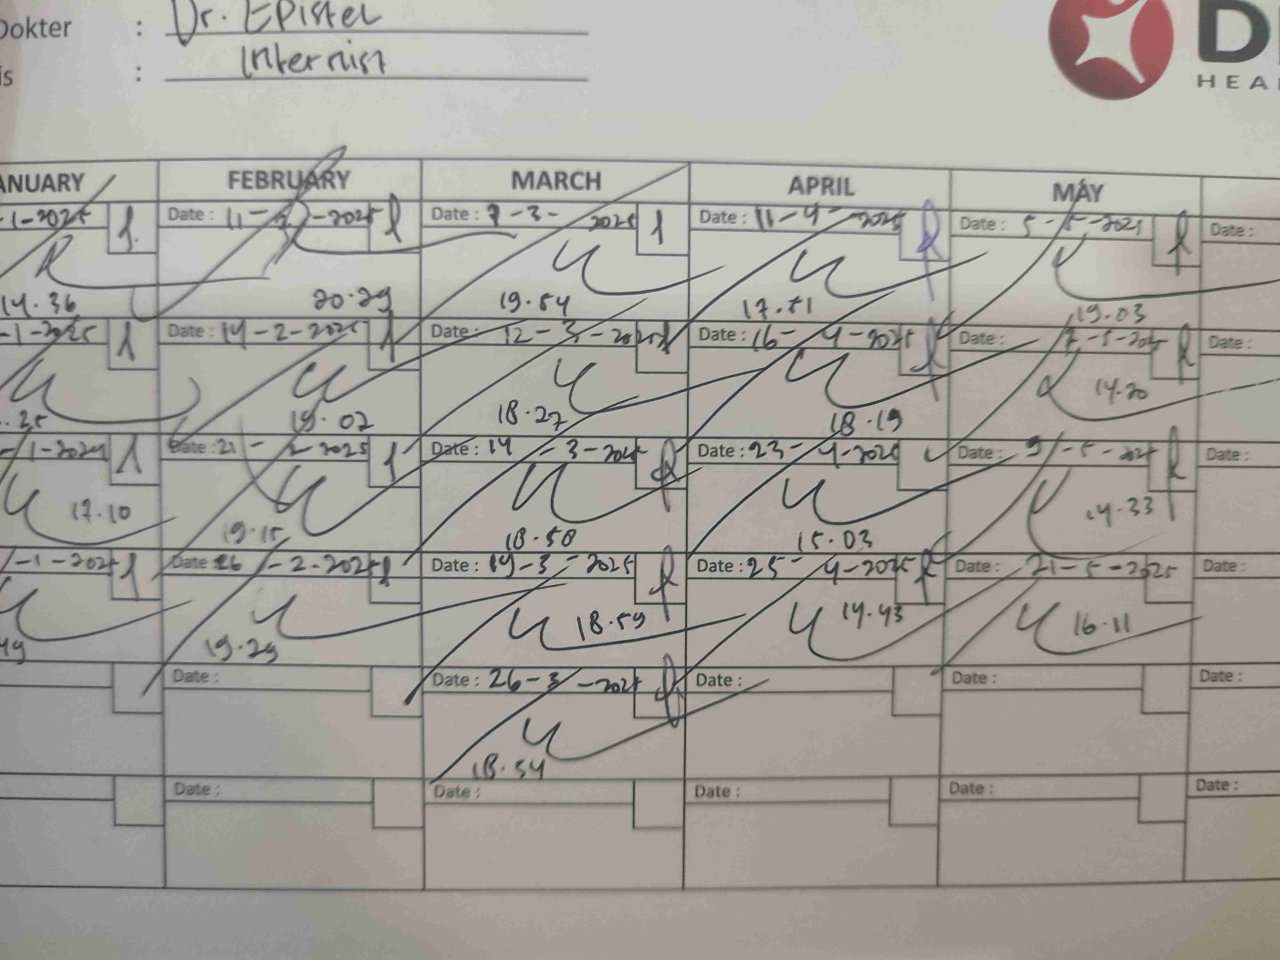 Dokter : Dr. Epistel
is : Internist
D
HEA
ANUARY FEBRUARY MARCH APRIL MAY
-1-2025 Date : 11-2-2025 Date : 7-3-2025 Date : 11-4-2025 Date : 5-5-2025 Date :
14.36 20.29 19.54 17.51 19.03
-1-2025 Date : 14-2-2025 Date : 12-3-2025 Date : 16-4-2025 7-5-2025 Date :
.25 19.02 18.27 18.19 14.20
-1-2025 Date : 21-2-2025 Date : 14-3-2025 Date : 23-4-2025 Date : 9-5-2025 Date :
17.10 19.15 18.58 15.03 14.33
-1-2025 Date 26-2-2025 Date : 19-3-2025 Date : 25-4-2025 Date : 21-5-2025 Date :
49 19.29 18.59 14.43 16.11
Date : Date : 26-3-2025 Date : Date : Date :
18.54
Date : Date : Date : Date : Date :